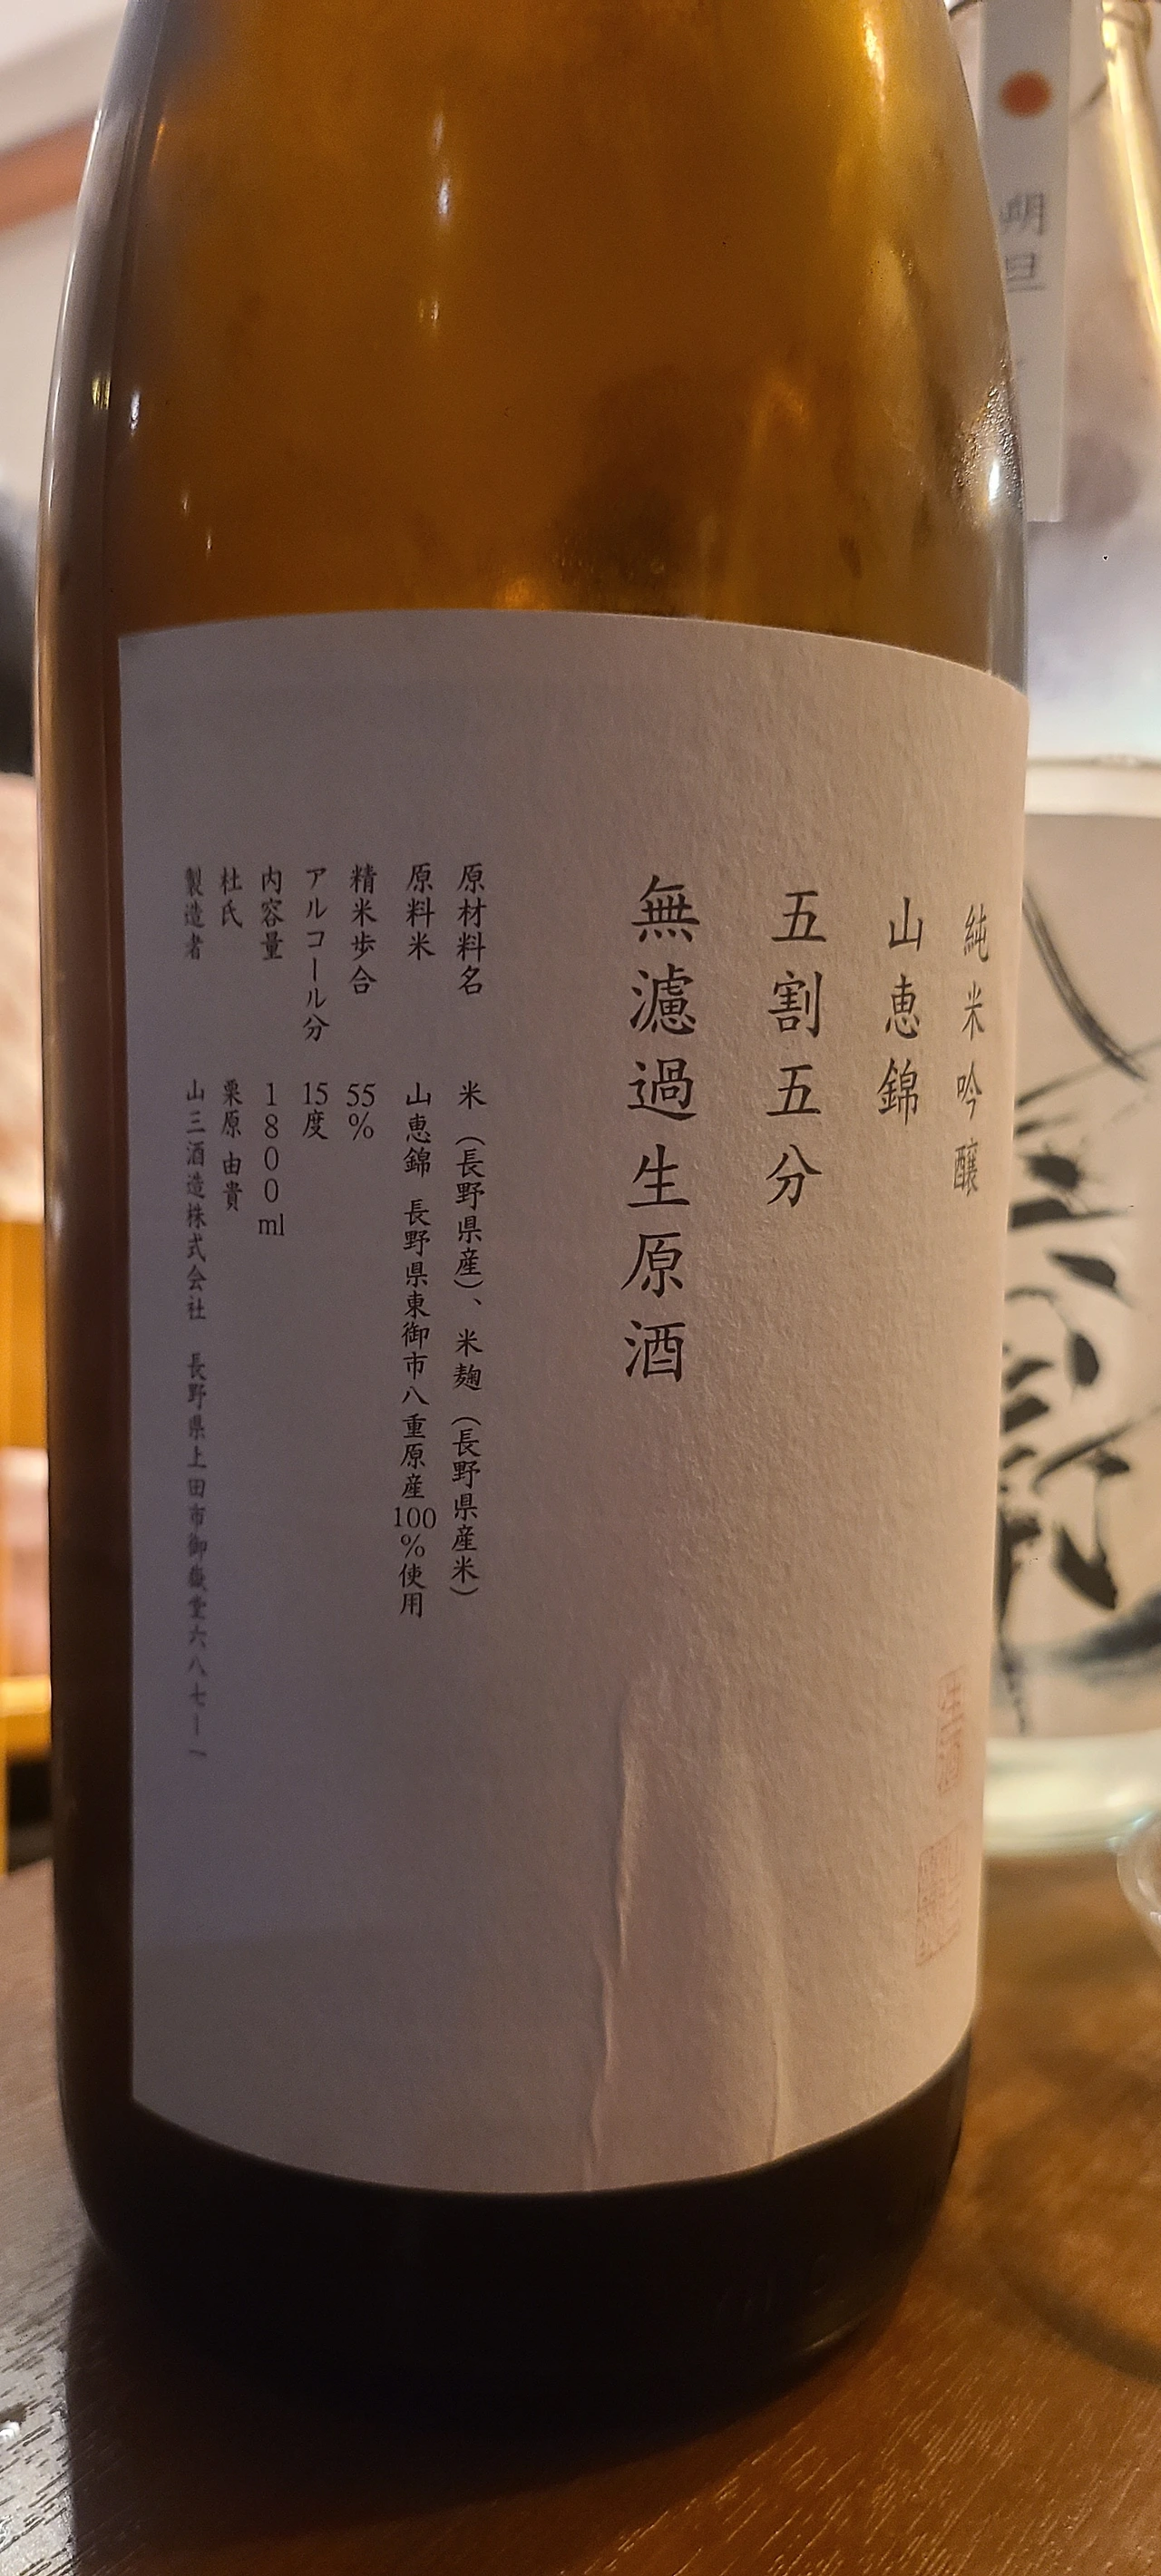 純米吟醸
山恵錦
五割五分
無濾過生原酒
原材料名 米（長野県産）、米麹（長野県産米）
原料米 山恵錦 長野県東御市八重原産100%使用
精米歩合 55%
アルコール分 15度
内容量 1800ml
杜氏 栗原由貴
製造者 山三酒造株式会社 長野県上田市御嶽堂六八七ー一
生酒
朔旦